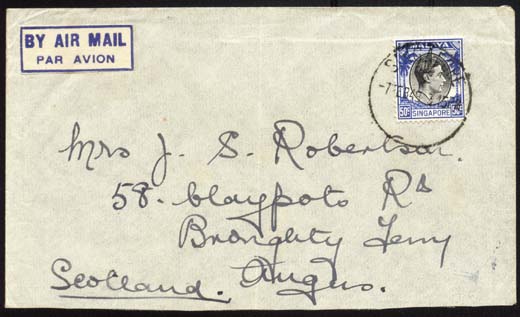 BY AIR MAIL
PAR AVION
MALAYA
50c
SINGAPORE
Mrs J. S. Robertson.
58. Claypots Rd
Broughty Ferry
Scotland. Angus.